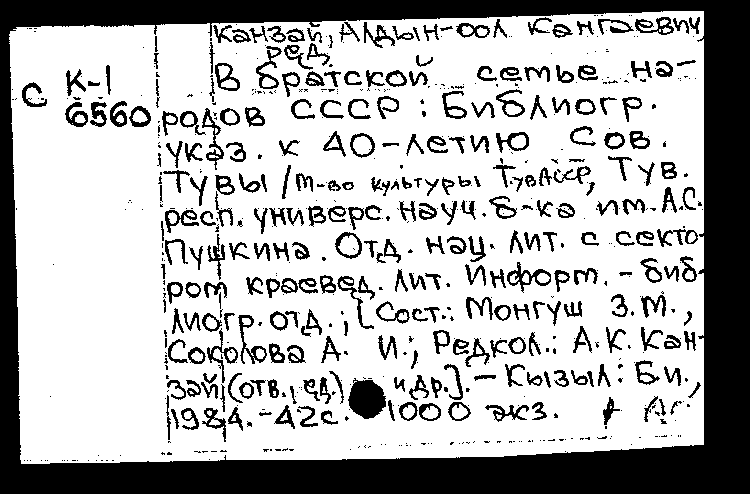 Канзай, Алдын-оол Кангаевич,
ред.
С К-1 В братской семье на-
6560 родов СССР : Библиогр.
указ. к 40-летию Сов.
Тувы / М-во культуры ТувАССР, Тув.
респ. универс. науч. б-ка им. А.С.
Пушкина. Отд. нац. лит. с секто-
ром краевед. лит. Информ. - биб-
лиогр. отд. ; [Сост.: Монгуш З.М.,
Соколова А. И.; Редкол.: А.К. Кан-
зай (отв. ред.) и др.]. - Кызыл : Б.и.,
1984. - 42с. 1000 экз.